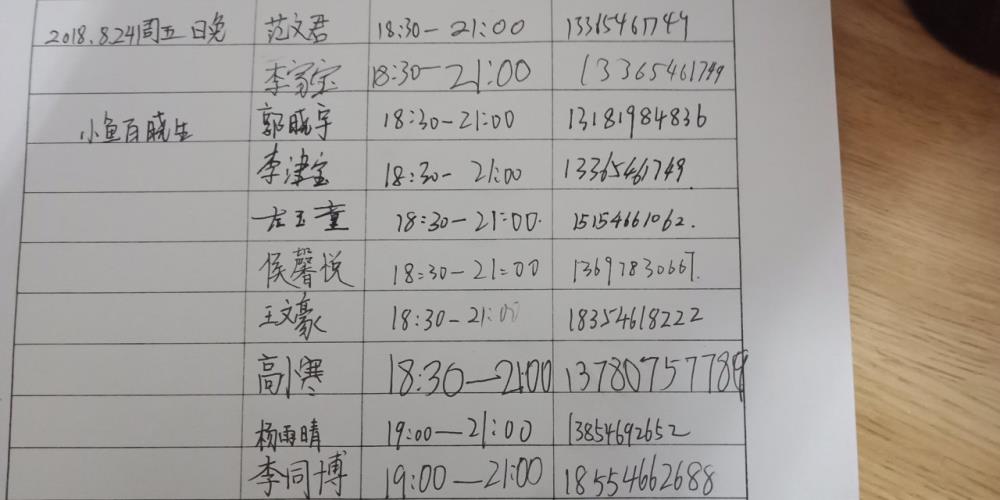 2018.8.24周五日晚 范文君 18:30-21:00 13365461749
李家宝 18:30-21:00 13365461749
小鱼百晓生 郭晓宇 18:30-21:00 13181984836
李津宝 18:30-21:00 13365461749.
左玉童 18:30-21:00. 15154661062.
侯馨悦 18:30-21:00 13697830667.
王文豪 18:30-21:00 18354618222
高小寒 18:30-21:00 13780757789
杨雨晴 19:00-21:00 13854692652
李同博 19:00-21:00 18554662688